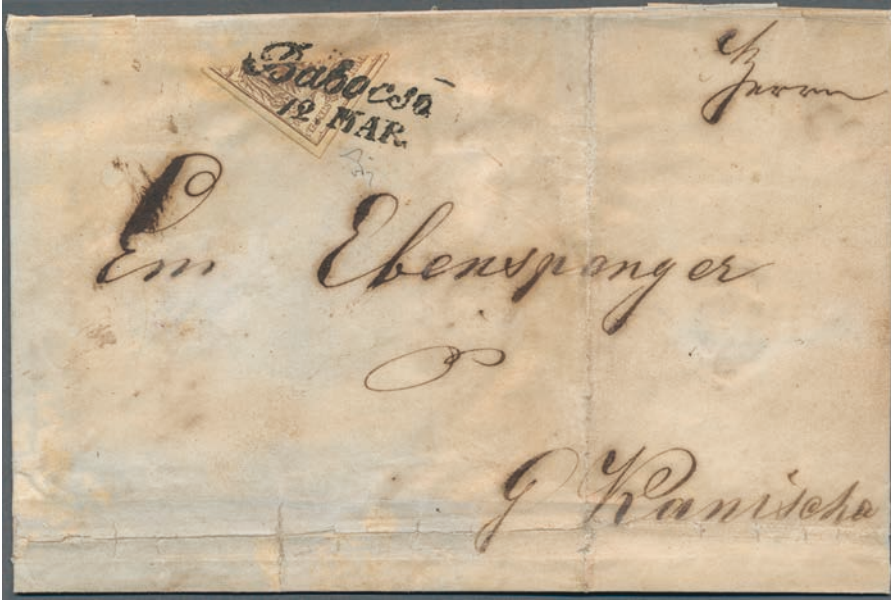 Babocsa
12 MAR.
Herrn
Em Ebenspanger
G Kanischa